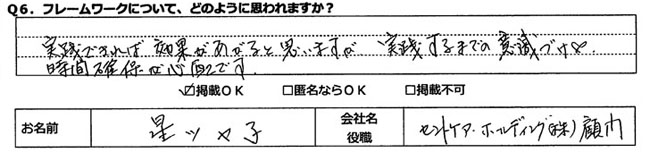 Q6．フレームワークについて、どのように思われますか？
実践できれば効果があがると思いますが 実践するまでの意識づけや
時間確保が必要です。
☑掲載OK　□匿名ならOK　□掲載不可
お名前　星ツヤ子　会社名　セントケア・ホールディング(株)顧問
役職